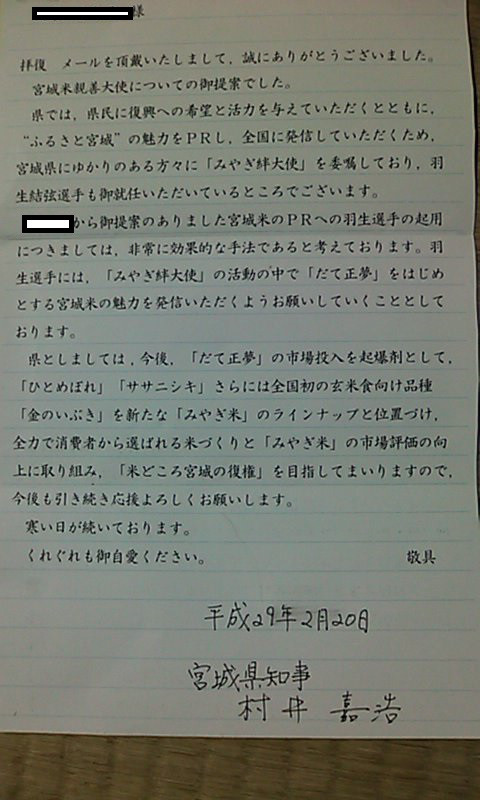 様
拝復　メールを頂戴いたしまして，誠にありがとうございました。
宮城米親善大使についての御提案でした。
県では，県民に復興への希望と活力を与えていただくとともに，
“ふるさと宮城”の魅力をＰＲし，全国に発信していただくため，
宮城県にゆかりのある方々に「みやぎ絆大使」を委嘱しており，羽
生結弦選手も御就任いただいているところでございます。
から御提案のありました宮城米のＰＲへの羽生選手の起用
につきましては，非常に効果的な手法であると考えております。羽
生選手には，「みやぎ絆大使」の活動の中で「だて正夢」をはじめ
とする宮城米の魅力を発信いただくようお願いしていくこととして
おります。
県としましては，今後，「だて正夢」の市場投入を起爆剤として，
「ひとめぼれ」「ササニシキ」さらには全国初の玄米食向け品種
「金のいぶき」を新たな「みやぎ米」のラインナップと位置づけ，
全力で消費者から選ばれる米づくりと「みやぎ米」の市場評価の向
上に取り組み，「米どころ宮城の復権」を目指してまいりますので，
今後も引き続き応援よろしくお願いします。
寒い日が続いております。
くれぐれも御自愛ください。　敬具
平成29年2月20日
宮城県知事
村井　嘉浩